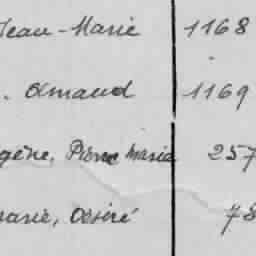 Jean-Marie 1168
. Armand 1169
gène, Pierre Maria 257
marie, Désiré 78